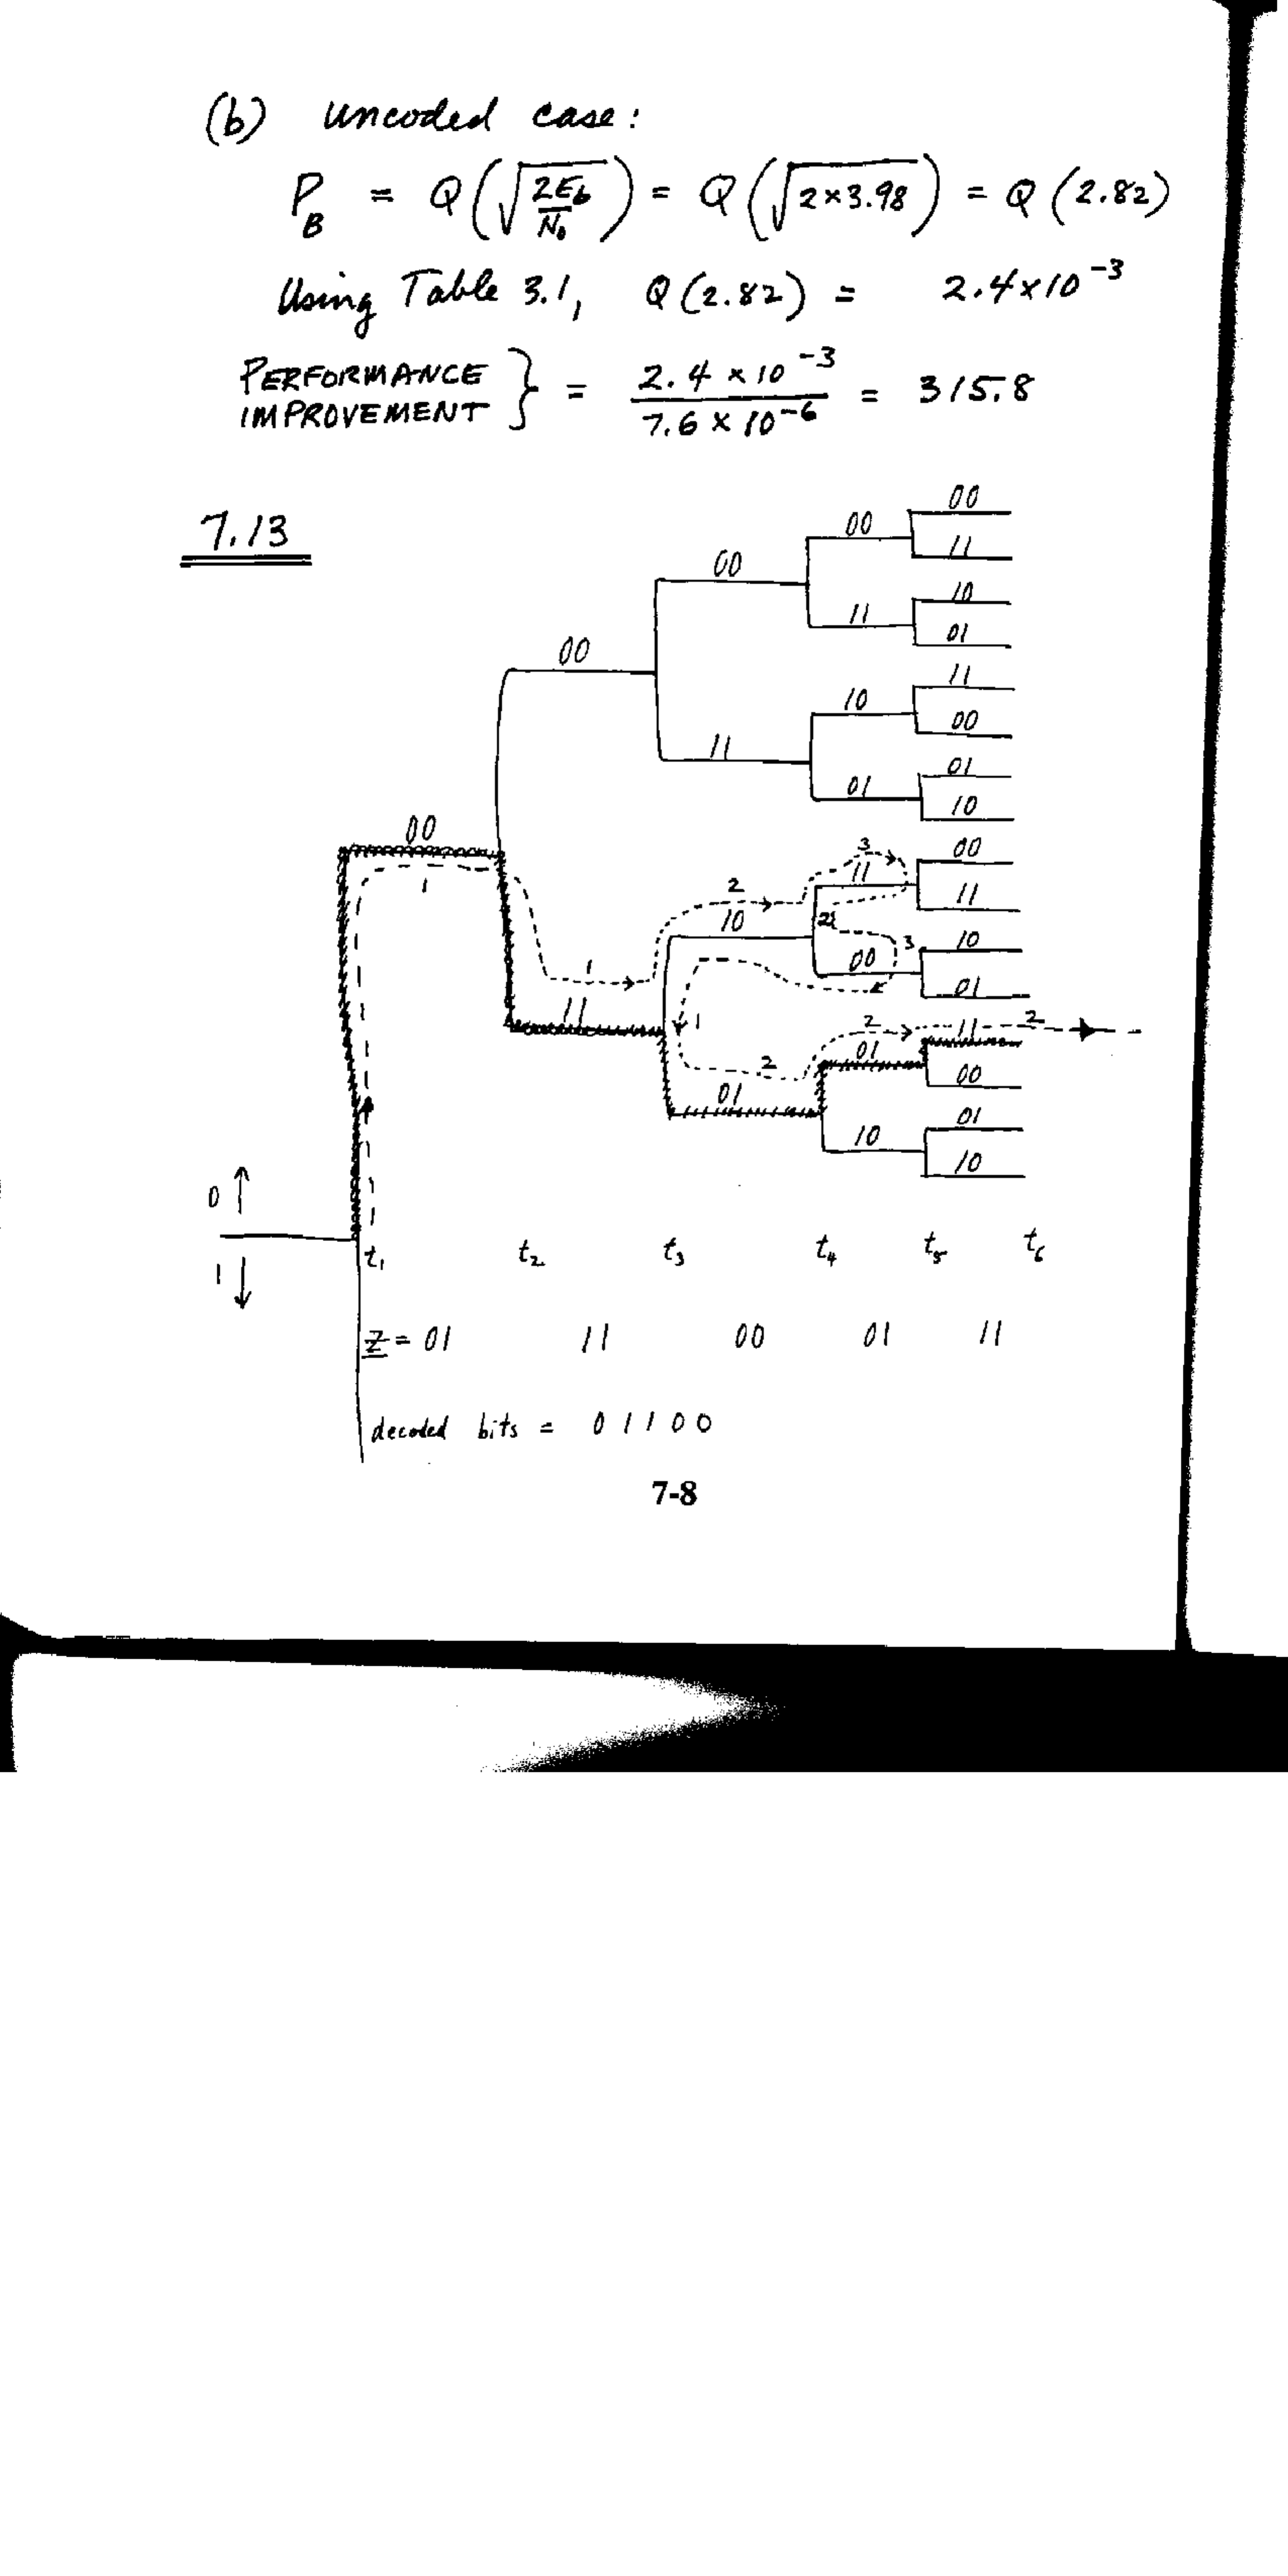 (b) uncoded case:
P_B = Q(√(2E_b/N_0)) = Q(√(2×3.98)) = Q(2.82)
Using Table 3.1, Q(2.82) = 2.4×10^-3
PERFORMANCE IMPROVEMENT } = 2.4 × 10^-3 / 7.6 × 10^-6 = 315.8
7.13
00
00
11
00
10
00
11
01
00
11
10
11
00
01
01
10
00
3
00
11
2
11
10
2
3
10
1
00
01
1
11
1
2
2
11
2
01
2
01
00
01
10
10
0 ↑
1 ↓
t_1 t_2 t_3 t_4 t_5 t_6
Z = 01 11 00 01 11
decoded bits = 0 1 1 0 0
7-8